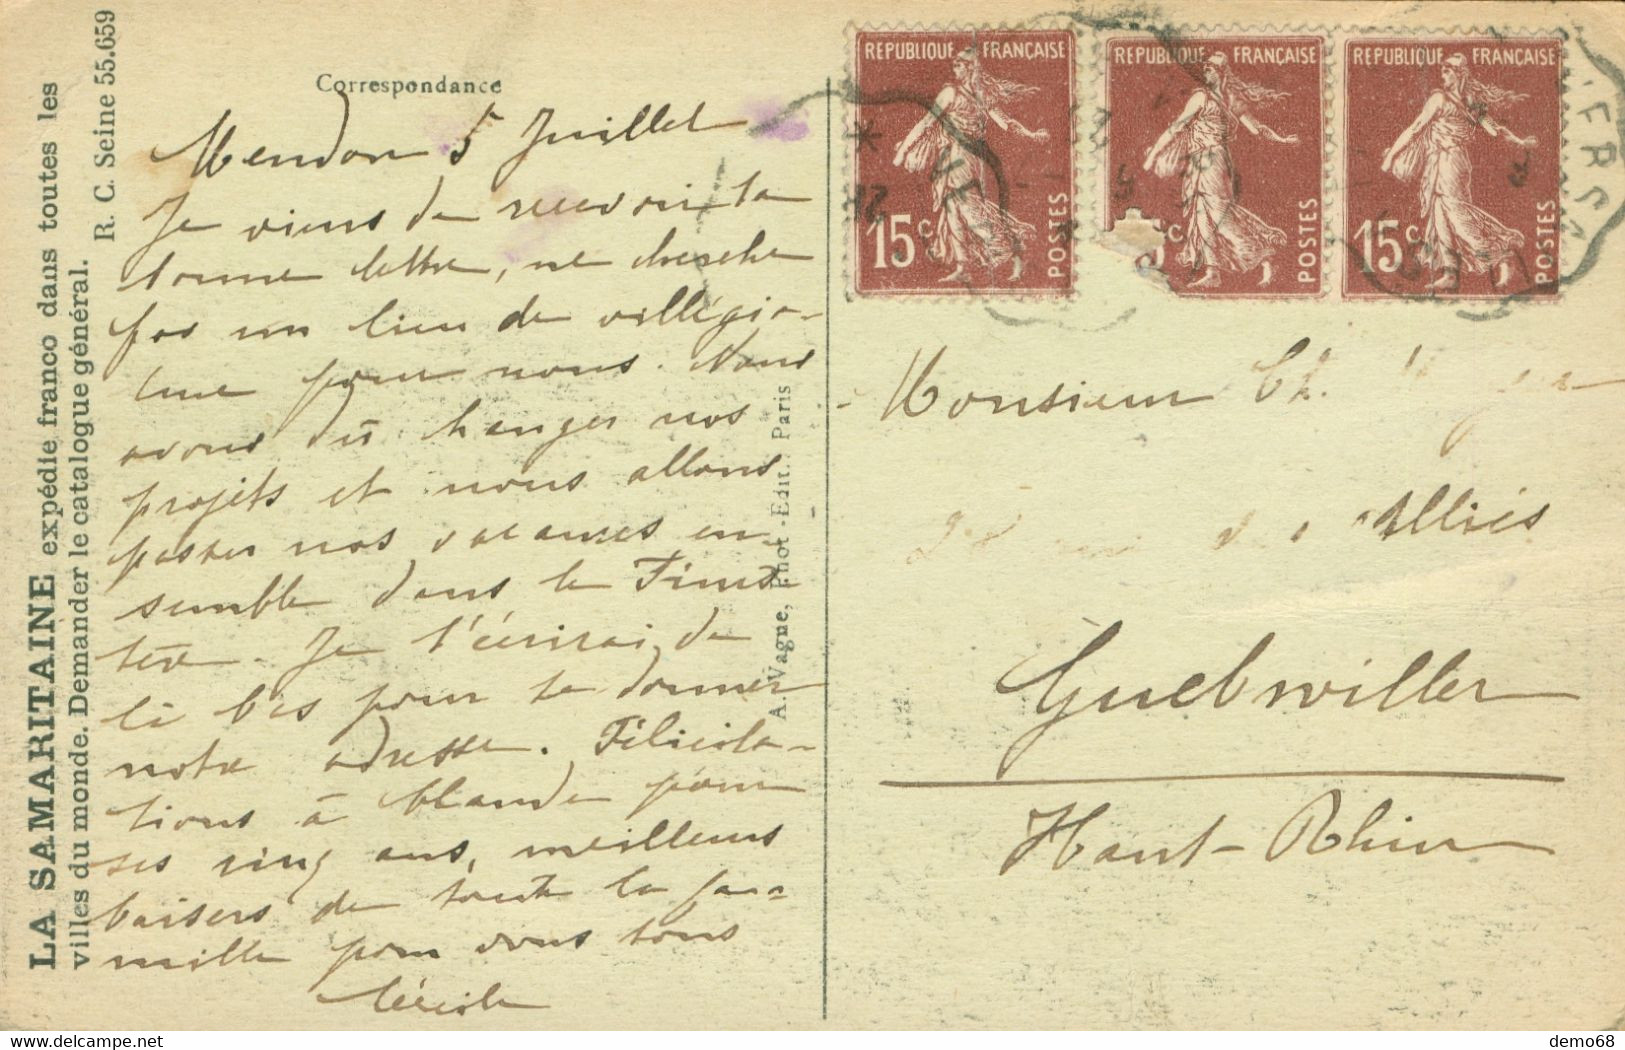 LA SAMARITAINE expédie franco dans toutes les
villes du monde. Demander le catalogue général.
R. C. Seine 55.659
Correspondance
Meudon 5 Juillet
Je viens de recevoir ta
bonne lettre, ne cherche
pas un lieu de villégia-
ture pour nous. Nous
avons dû changer nos
projets et nous allons
passer nos vacances en-
semble dans le Finis
tère. Je t'écrirai de
là bas pour te donner
notre adresse. Félicita-
tions à Claude pour
ses cinq ans, meilleurs
baisers de toute la fa-
mille pour vous tous
Cécile
A. Vagne, Phot.-Edit. Paris
REPUBLIQUE FRANÇAISE
15c
POSTES
REPUBLIQUE FRANÇAISE
c
POSTES
REPUBLIQUE FRANÇAISE
15c
POSTES
Monsieur Ch.
Alliés
Guebwiller
Haut-Rhin
delcampe.net
demo68